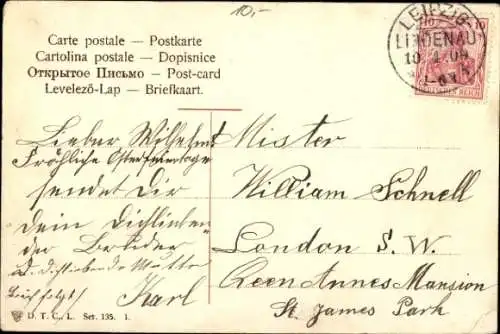 10,-
Carte postale — Postkarte
Cartolina postale — Dopisnice
Открытое Письмо — Post-card
Levelező-Lap — Briefkaart.
LEIPZIG-
LINDENAU
10 4 04
10
DEUTSCHES REICH
Lieber Wilhelm!
Fröhliche Osterfeiertage
sendet Dir
Dein Dich lieben
der Bruder
u. Dich liebende Mutter
Brief folgt!
Karl
Mister
William Schnell
London S. W.
Qeen Annes Mansion
St. James Park
D. T. C., L. Ser. 135. 1.